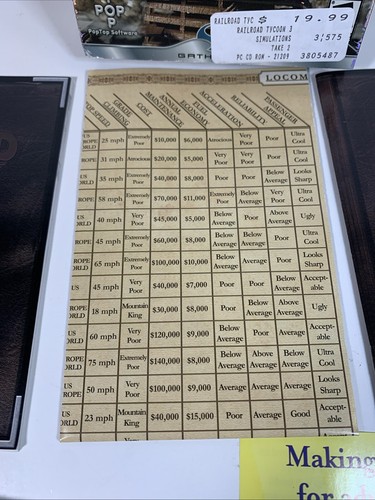 POP
P
PopTop Software
RAILROAD TYC $ 19.99
RAILROAD TYCOON 3
SIMULATIONS 3,575
TAKE 2
PC CD ROM - 21209 3805487
GATH
LOCOM
TOP SPEED GRADE CLIMBING COST ANNUAL MAINTENANCE FUEL ECONOMY ACCELERATION RELIABILITY PASSENGER APPEAL
US ROPE ORLD 25 mph Extremely Poor $10,000 $6,000 Atrocious Very Poor Poor Ultra Cool
ROPE 31 mph Atrocious $20,000 $5,000 Very Poor Very Poor Poor Ultra Cool
US ORLD 35 mph Extremely Poor $40,000 $8,000 Poor Poor Below Average Looks Sharp
ROPE 58 mph Extremely Poor $70,000 $11,000 Extremely Poor Below Average Very Poor Ultra Cool
US ORLD 40 mph Very Poor $45,000 $5,000 Below Average Poor Above Average Ugly
ROPE 45 mph Extremely Poor $60,000 $8,000 Below Average Below Average Poor Ultra Cool
ROPE ORLD 65 mph Extremely Poor $100,000 $10,000 Below Average Average Poor Looks Sharp
US 45 mph Very Poor $40,000 $7,000 Poor Poor Below Average Acceptable
ROPE ORLD 18 mph Mountain King $30,000 $8,000 Poor Below Average Above Average Ugly
US ORLD 60 mph Very Poor $120,000 $9,000 Below Average Poor Average Acceptable
ROPE ORLD 75 mph Extremely Poor $140,000 $8,000 Below Average Above Average Below Average Ultra Cool
US ROPE 50 mph Very Poor $100,000 $9,000 Average Average Average Looks Sharp
US ORLD 23 mph Mountain King $40,000 $15,000 Poor Average Good Acceptable
Making
for